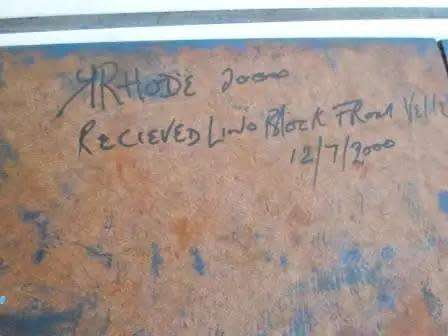 RHODE 2000
RECIEVED LINO BLOCK FROM
12/7/2000